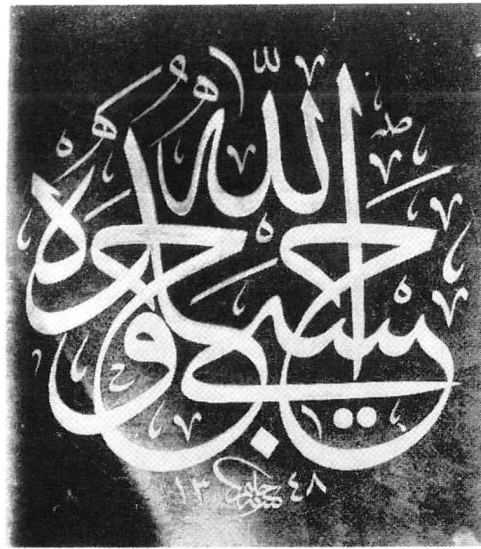 حسبي الله وحده
حامد ١٣٤٨